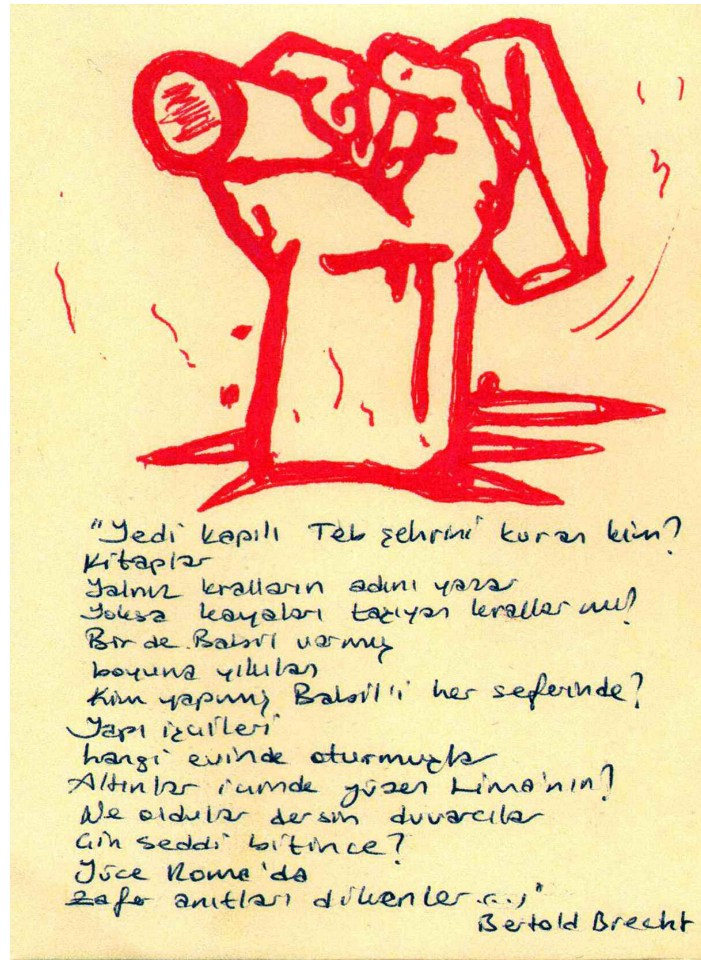 "Yedi kapılı Teb şehrini kuran kim?
Kitaplar
Yalnız kralların adını yazar
Yoksa kayaları taşıyan krallar mı?
Bir de Babil varmış
boyuna yıkılan
Kim yapmış Babil'i her seferinde?
Yapı işçileri
hangi evinde oturmuşlar
Altınlar içinde yüzen Lima'nın?
Ne oldular dersin duvarcılar
Çin seddi bitince?
Yüce Roma'da
zafer anıtları dikenler..."
Bertold Brecht